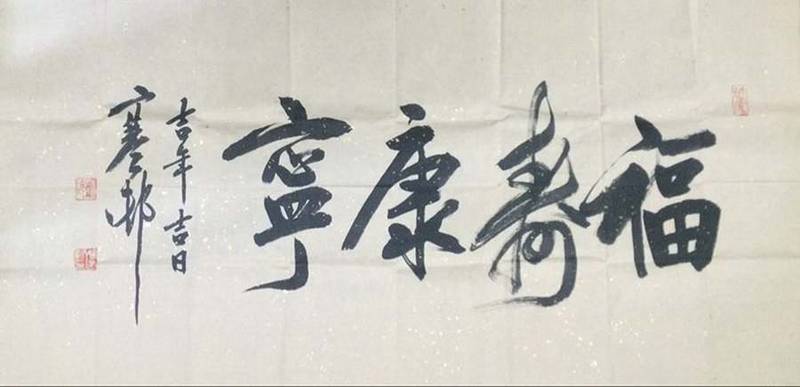 福壽康寧
吉年吉日
寒邨